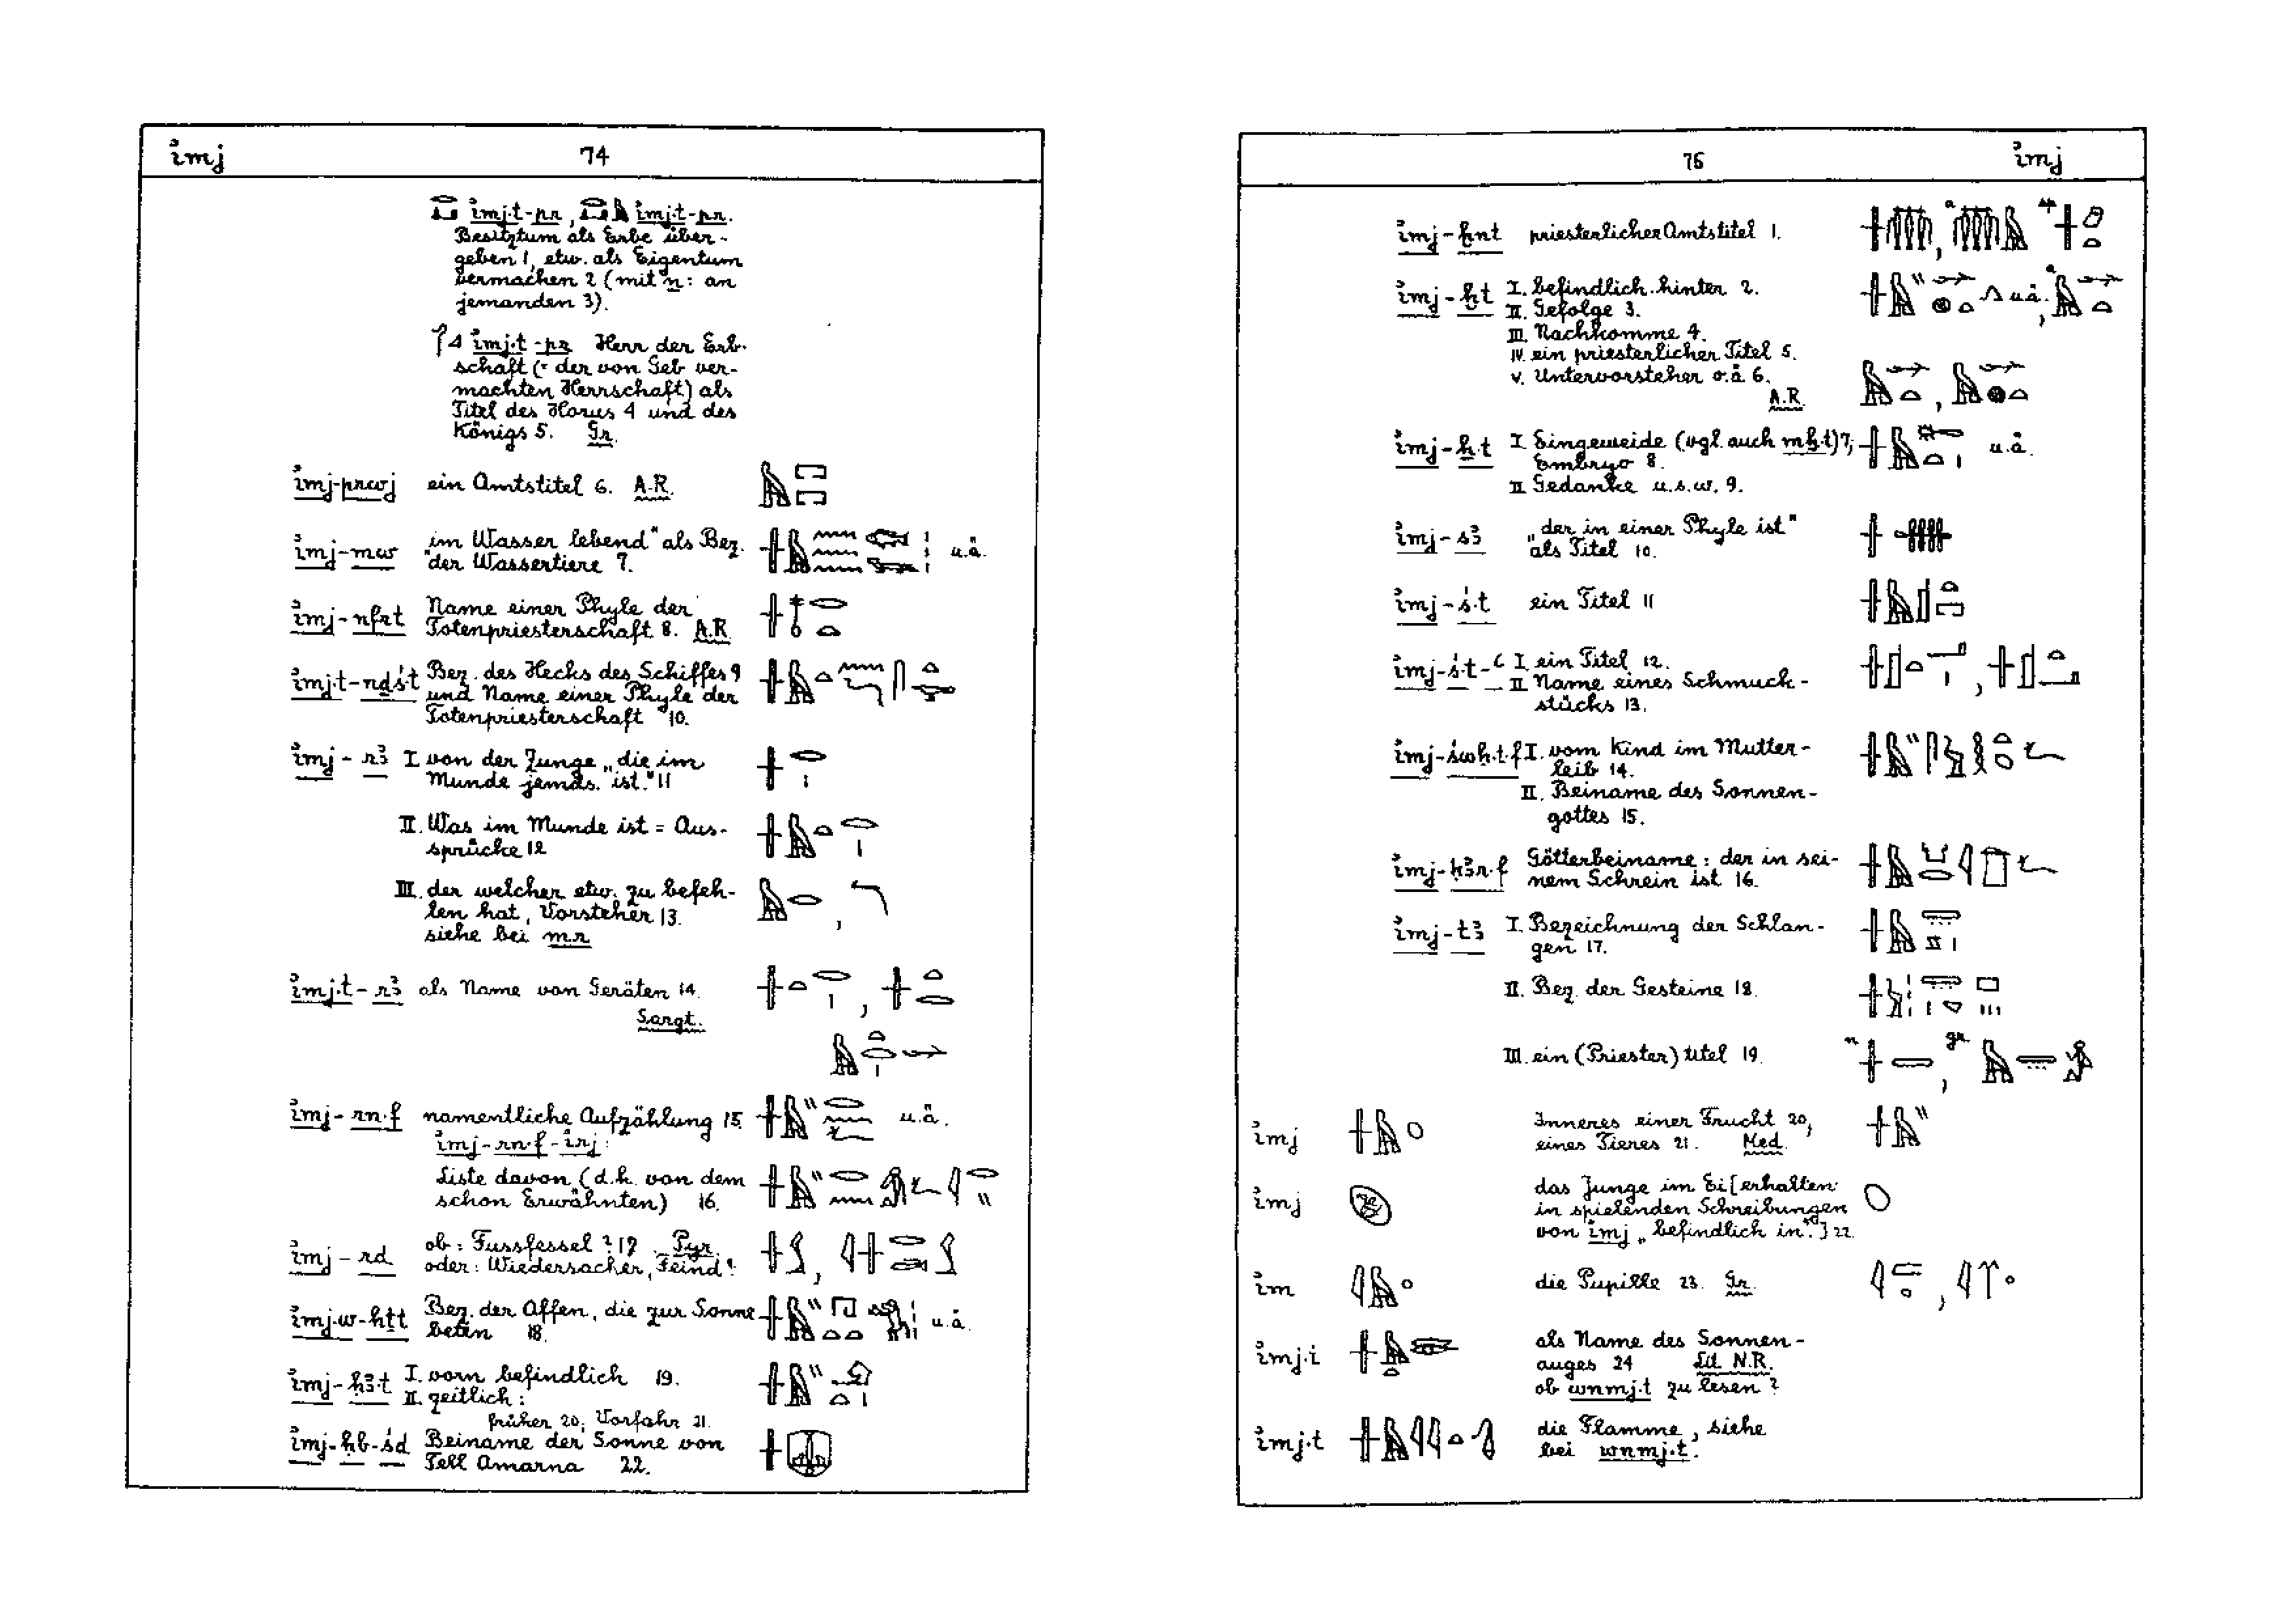 imj 74
imj.t-pr, imj.t-pr.
Besitztum als Erbe über-
geben 1, etw. als Eigentum
vermachen 2 (mit n: an
jemanden 3).
imj.t-pr Herr der Erb-
schaft (= der von Geb ver-
machten Herrschaft) als
Titel des Horus 4 und des
Königs 5. Gr.
imj-prwj ein Amtstitel 6. A.R.
imj-mw „im Wasser lebend" als Bez. u.ä.
der Wassertiere 7.
imj-nfrt Name einer Phyle der
Totenpriesterschaft 8. A.R.
imj.t-nḏś.t Bez. des Hecks des Schiffes 9
und Name einer Phyle der
Totenpriesterschaft 10.
imj-r3 I von der Zunge „die im
Munde jemds. ist." 11
II. Was im Munde ist = Aus-
sprüche 12
III. der welcher etw. zu befeh-
len hat, Vorsteher 13.
siehe bei mr
imj.t-r3 als Name von Geräten 14.
Sargt.
imj-rn.f namentliche Aufzählung 15. u.ä.
imj-rn.f-irj:
Liste davon (d.h. von dem
schon Erwähnten) 16.
imj-rd ob: Fussfessel? 17. Pyr.
oder: Wiedersacher, Feind?
imj.w-htt Bez. der Affen, die zur Sonne u.ä.
beten 18.
imj-ḥ3.t I. vorn befindlich 19.
II. zeitlich:
früher 20; Vorfahr 21.
imj-ḥb-śd Beiname der Sonne von
Tell Amarna 22.
75 imj
imj-ḫnt priesterlicher Amtstitel 1.
imj-ḫt I. befindlich hinter 2. u.ä.
II. Gefolge 3.
III. Nachkomme 4.
IV. ein priesterlicher Titel 5.
V. Untervorsteher o.ä. 6.
A.R.
imj-ẖ.t I Eingeweide (vgl. auch mẖ.t) 7, u.ä.
Embryo 8.
II Gedanke u.s.w. 9.
imj-s3 „der in einer Phyle ist"
als Titel 10.
imj-ś.t ein Titel 11
imj-ś.t-ʿ I. ein Titel 12.
II Name eines Schmuck-
stücks 13.
imj-śwḥ.t.f I. vom Kind im Mutter-
leib 14.
II. Beiname des Sonnen-
gottes 15.
imj-k3r.f Götterbeiname: der in sei-
nem Schrein ist 16.
imj-t3 I. Bezeichnung der Schlan-
gen 17.
II. Bez. der Gesteine 18.
III. ein (Priester) titel 19.
imj Inneres einer Frucht 20,
eines Tieres 21. Med.
imj das Junge im Ei [erhalten
in spielenden Schreibungen
von imj „befindlich in".] 22
im die Pupille 23. Gr.
imj.t als Name des Sonnen-
auges 24 Lit. N.R.
ob wnmj.t zu lesen?
imj.t die Flamme, siehe
bei wnmj.t.